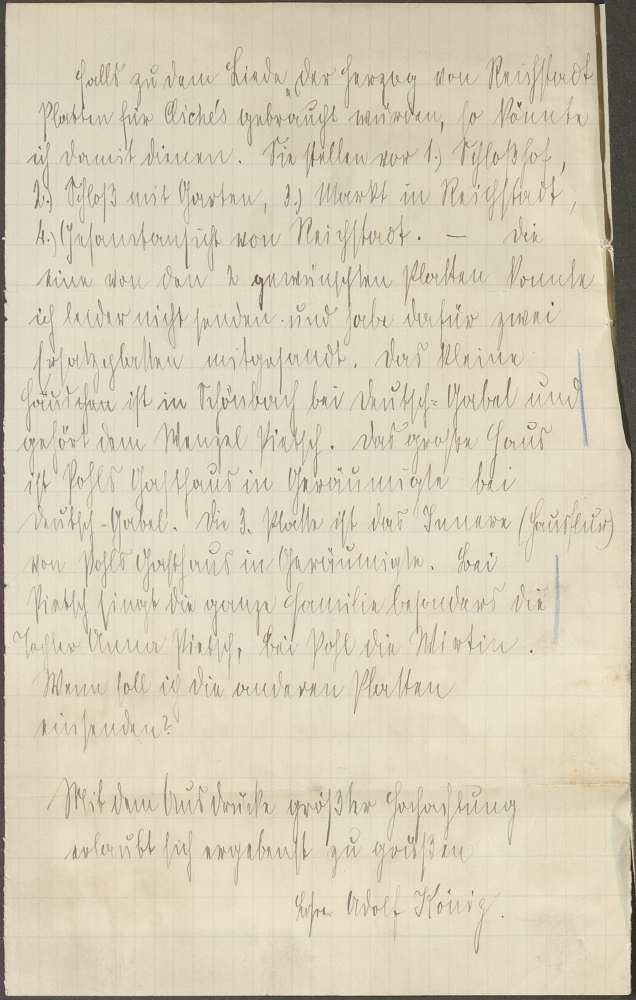 Falls zu dem Liede „Der Herzog von Reichstadt
Platten für Clichés gebraucht würden, so könnte
ich damit dienen. Sie stellen vor 1.) Schloßhof,
2.) Schloß mit Garten, 3.) Markt in Reichstadt,
4.) Gesamtansicht von Reichstadt. — Die
eine von den 2 gewünschten Platten konnte
ich leider nicht senden und habe dafür zwei
Ersatzplatten mitgesandt. Das kleine
Häuschen ist in Schönbach bei Deutsch-Gabel und
gehört dem Wenzel Pietsch. Das große Haus
ist Pohls Gasthaus in Geräumigte bei
Deutsch-Gabel. Die 3. Platte ist das Innere (Hausflur)
von Pohls Gasthaus in Geräumigte. Bei
Pietsch singt die ganze Familie besonders die
Tochter Anna Pietsch, bei Pohl die Wirtin.
Wenn soll ich die anderen Platten
einsenden?
Mit dem Ausdrucke größter Hochachtung
erlaubt sich ergebenst zu grüßen
Adolf König.